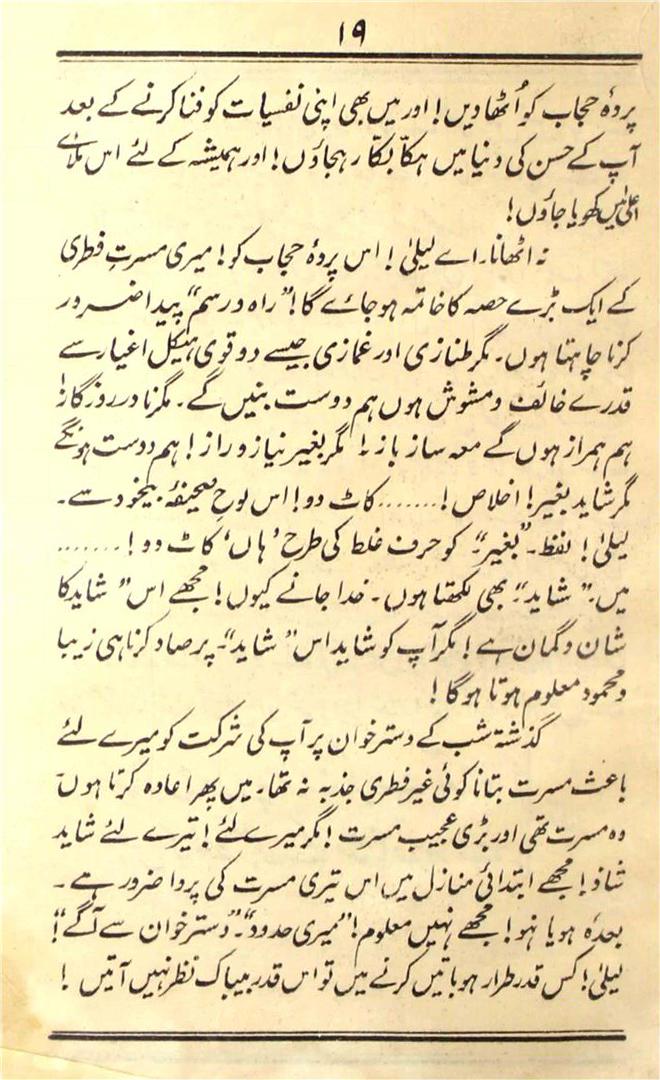 ۱۹
پردۂ حجاب کو اُٹھادیں! اور میں بھی اپنی نفسیات کو فنا کرنے کے بعد
آپ کے حسن کی دنیا میں ہکّا بکّا رہجاؤں! اور ہمیشہ کے لئے اس ملاءِ
اعلیٰ میں کھویا جاؤں!
نہ اٹھانا۔ اے لیلیٰ! اس پردۂ حجاب کو! میری مسرتِ فطری
کے ایک بڑے حصہ کا خاتمہ ہو جائے گا! "راہ و رسم" پیدا ضرور
کرنا چاہتا ہوں۔ مگر طنازی اور غمازی جیسے دو قوی ہیکل اغیار سے
قدرے خائف و مشوش ہوں ہم دوست بنیں گے۔ مگر نادر روزگار!
ہم ہمراز ہوں گے معہ ساز باز! مگر بغیر نیاز و راز! ہم دوست ہونگے
مگر شاید بغیر! اخلاص! ....... کاٹ دو! اس لوحِ صحیفۂ بیخود سے۔
لیلیٰ! لفظ۔ "بغیر"۔ کو حرف غلط کی طرح 'ہاں' کاٹ دو! .......
میں۔ "شاید"۔ بھی لکھتا ہوں۔ خدا جانے کیوں! مجھے اس "شاید کا
شان و گمان ہے! مگر آپ کو شاید اس "شاید"۔ پر صاد کرنا ہی زیبا
و محمود معلوم ہوتا ہوگا!
گذشتہ شب کے دسترخوان پر آپ کی شرکت کو میرے لئے
باعث مسرت بتانا کوئی غیر فطری جذبہ نہ تھا۔ میں پھر اعادہ کرتا ہوں
وہ مسرت تھی اور بڑی عجیب مسرت! مگر میرے لئے! تیرے لئے شاید
شاذ! مجھے ابتدائی منازل میں اس تیری مسرت کی پروا ضرور ہے۔
بعدہٗ ہو یا نہو! مجھے نہیں معلوم! "میری حدود"۔ "دسترخوان سے آگے"!
لیلیٰ! کس قدر طرار ہو باتیں کرنے میں تو اس قدر بیباک نظر نہیں آتیں!